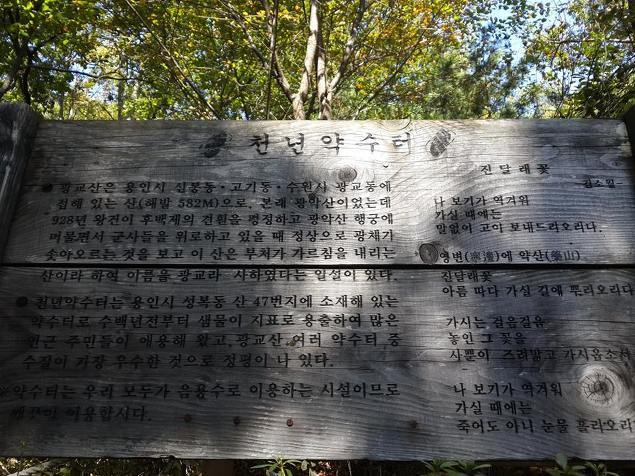 천년약수터
● 광교산은 용인시 신봉동·고기동·수원시 광교동에
접해 있는 산(해발 582M)으로, 본래 광악산이었는데
928년 왕건이 후백제의 견훤을 평정하고 광악산 행궁에
머물면서 군사들을 위로하고 있을 때 정상으로 광채가
솟아오르는 것을 보고 이 산은 부처가 가르침을 내리는
산이라 하여 이름을 광교라 사하였다는 일설이 있다.
● 천년약수터는 용인시 성복동 산 47번지에 소재해 있는
약수터로 수백년전부터 샘물이 지표로 용출하여 많은
인근 주민들이 애용해 왔고,광교산 여러 약수터 중
수질이 가장 우수한 것으로 정평이 나 있다.
※약수터는 우리 모두가 음용수로 이용하는 시설이므로
이용합시다.
진달래꽃
김소월
나 보기가 역겨워
가실 때에는
말없이 고이 보내드리오리다.
영변(寧邊)에 약산(藥山)
진달래꽃
아름 따다 가실 길에 뿌리오리다
가시는 걸음걸음
놓인 그 꽃을
사뿐이 즈려밟고 가시옵소서
나 보기가 역겨워
가실 때에는
죽어도 아니 눈물 흘리오리